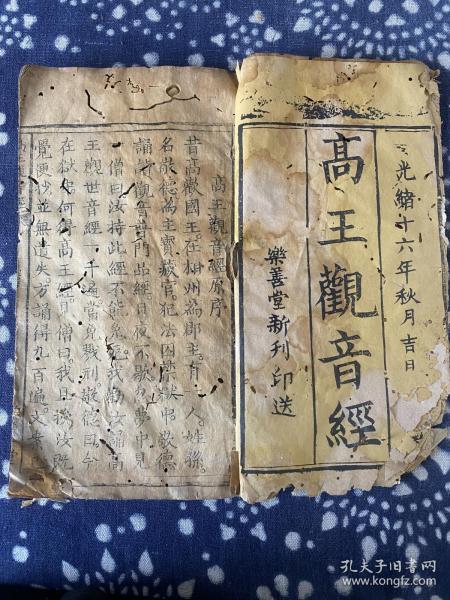 光緒十六年秋月吉日
髙王觀音經
樂善堂新刊印送
高王觀音經原序
昔高歡國王在相州為郡主有一人姓孫
名敬德為主寶藏官犯法囚禁獄中敬德
誦觀音普門品經日夜不歇忽夢中見
一僧曰汝持此經不能免死我勸汝誦高
王觀世音經一千遍當免戮刑敬德曰今
在獄中何得高王經僧曰我口授汝既
覺便抄並無遺失方誦得九百遍文案
孔夫子旧书网
www.kongfz.com